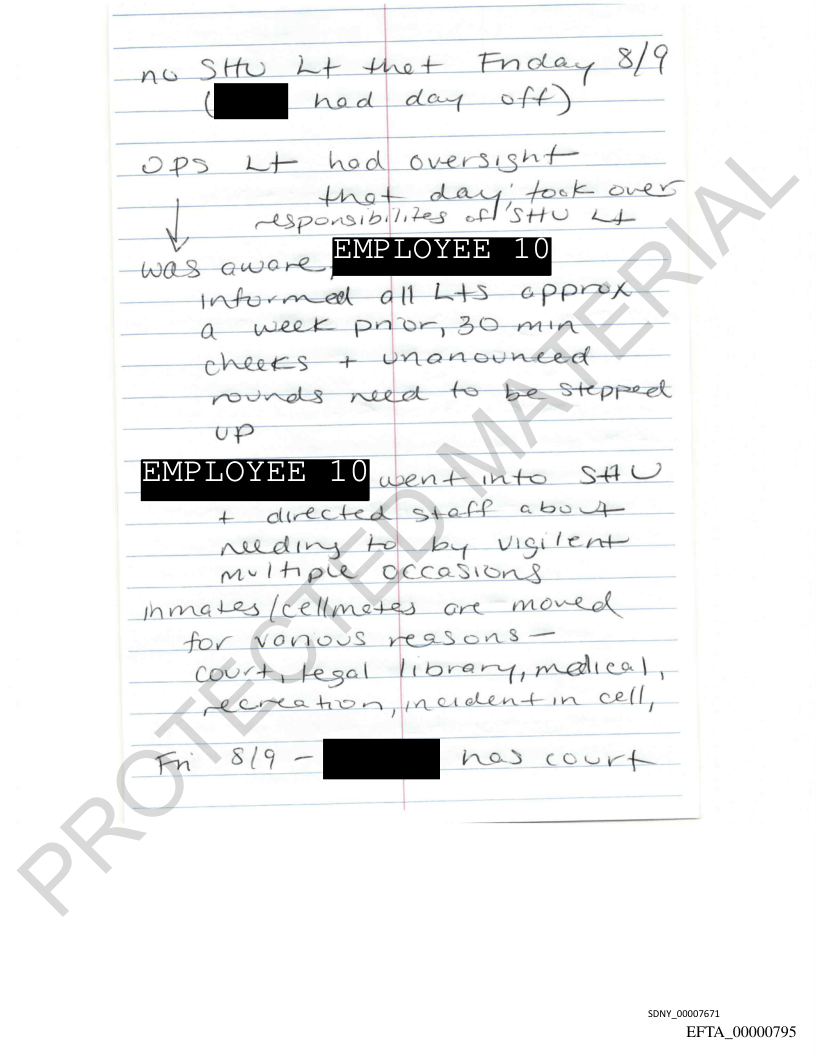 no SHU Lt that Friday 8/9
( had day off)
OPS Lt had oversight
that day, took over
responsibilites of SHU Lt
was aware, EMPLOYEE 10
informed all Lts approx
a week prior, 30 min
checks + unanounced
rounds need to be stepped
up
EMPLOYEE 10 went into SHU
+ directed staff about
needing to by vigilent
multiple occasions
inmates/cellmates are moved
for various reasons –
court, legal library, medical,
recreation, incident in cell,
Fri 8/9 – has court
PROTECTED MATERIAL
SDNY_00007671
EFTA_00000795